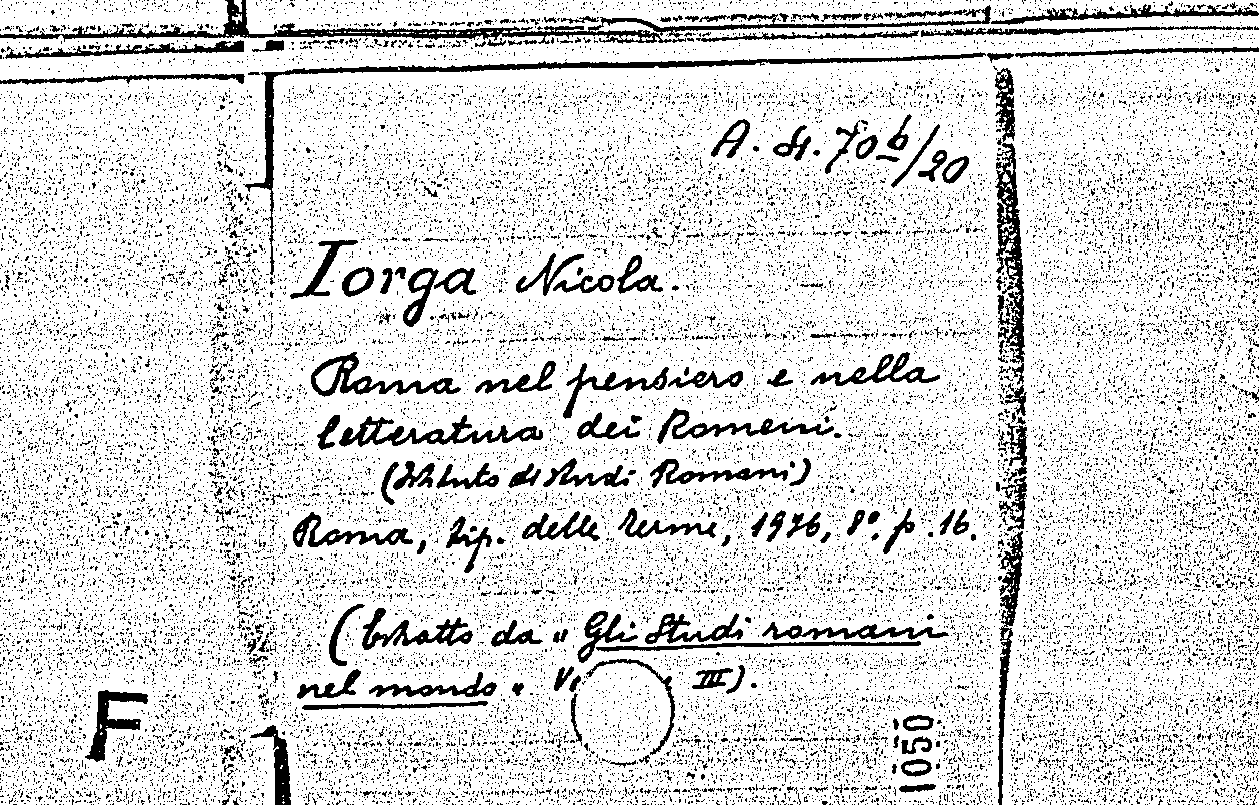 A. St. 70 b/20
Iorga Nicola.
Roma nel pensiero e nella
letteratura dei Romeni.
(Istituto di Studi Romani)
Roma, tip. delle Terme, 1936, 8º. p. 16.
(Estratto da "Gli Studi romani
nel mondo" V III).
F
1050